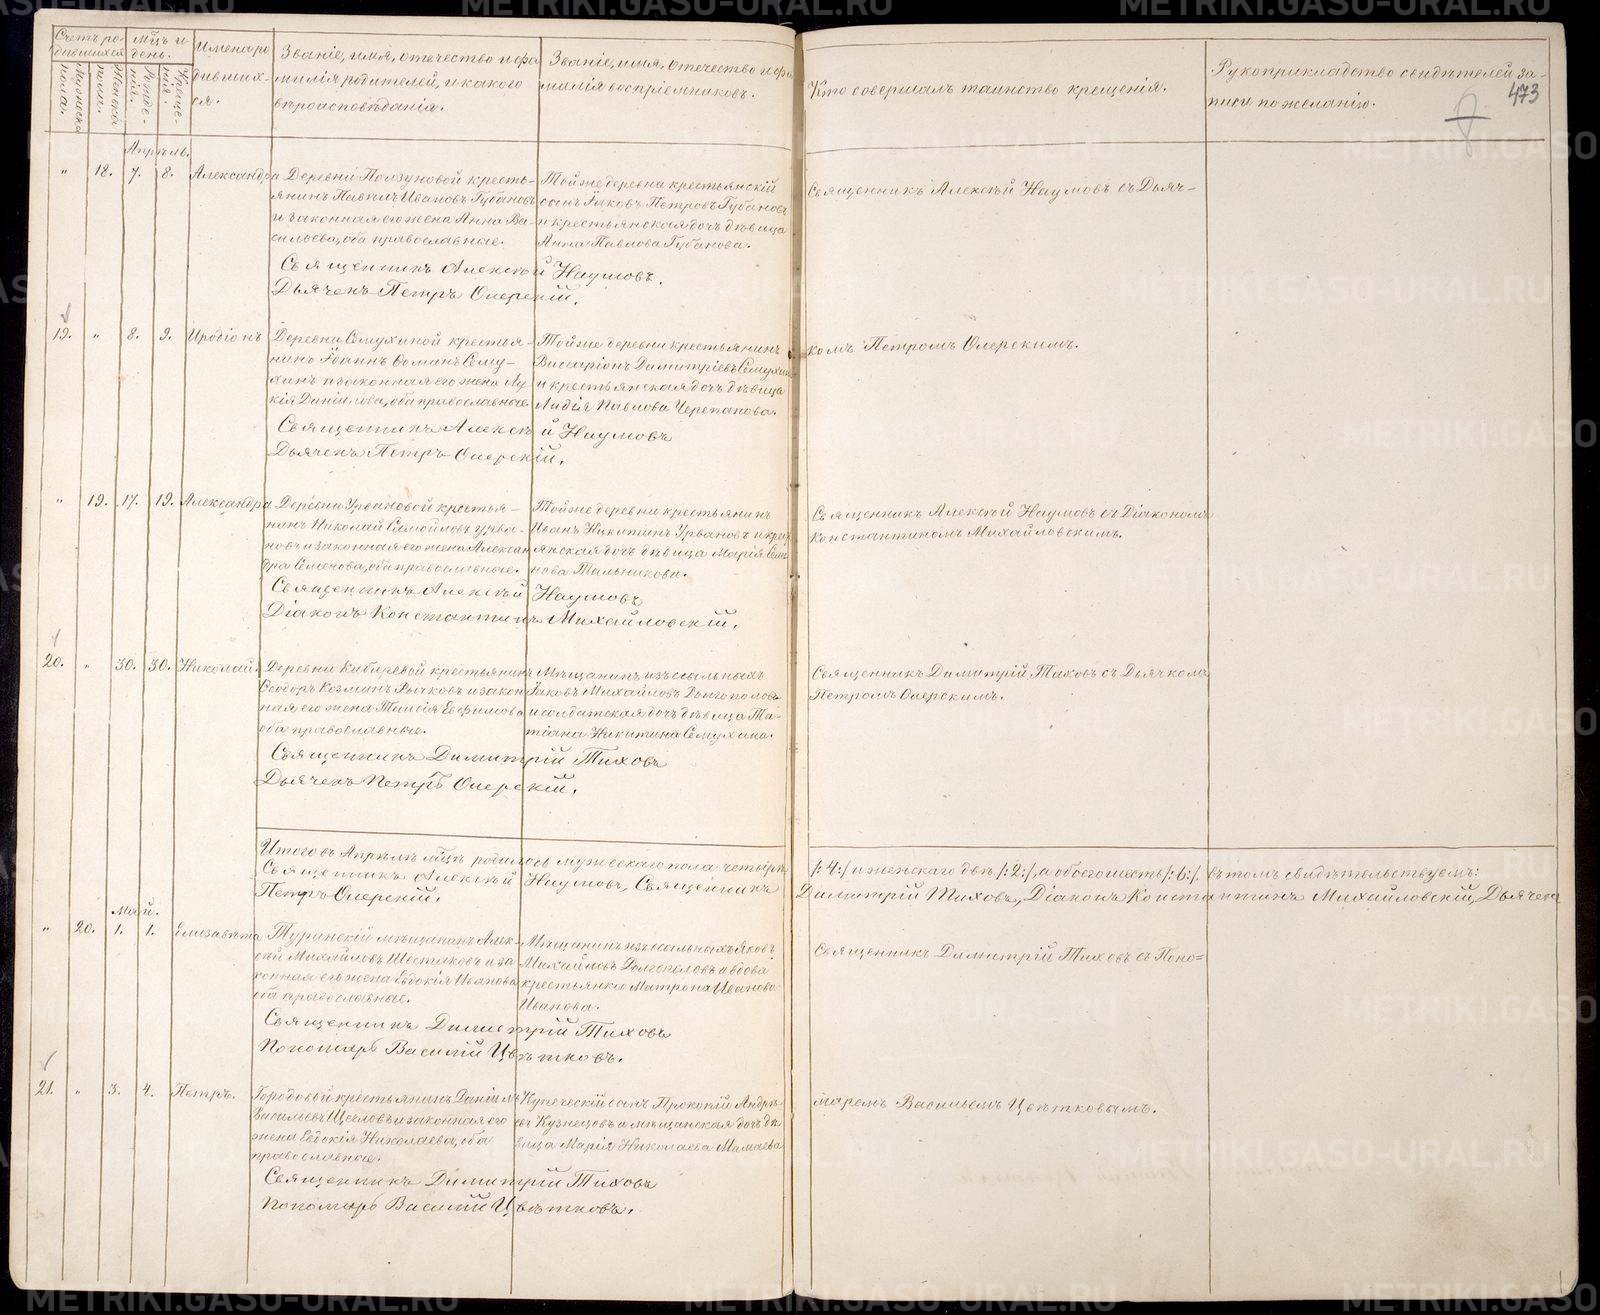 Счетъ родившихся
Мужеска пола.
Женска пола.
Мц҃ъ и день.
Рожденія.
Крещенія.
Имена родившихся.
Званіе, имя, отечество и фамилія родителей, и какого вѣроисповѣданія.
Званіе, имя, отечество и фамилія воспріемниковъ.
Кто совершалъ таинство крещенія.
Рукоприкладство свидѣтелей записи по желанію.
473
Апрѣль.
" 18. 7. 8. Александра
Деревни Ползуновой кресть-
янинъ Иванов Губановъ
и законная его жена Анна Ва-
сильева, оба православные.
Тойже деревни крестьянскій
сынъ Іаковъ Петровъ Губановъ
и крестьянская дочь дѣвица
Анна Павлова Губанова.
Священникъ Алексѣй Наумовъ съ Дьяч-
Священникъ Алексѣй Наумовъ.
Дьячекъ Петръ Олерскій.
19. " 8. 9. Иродіонъ
Деревни Семухиной крестья-
нинъ Іоаннъ Ѳоминъ Сему-
хинъ и законная его жена Лу-
кія Даніилова, оба православные.
Тойже деревни крестьянинъ
Виссаріонъ Димитріевъ Семухинъ
и крестьянская дочь дѣвица
Лидія Павлова Черепанова.
комъ Петромъ Олерскимъ.
Священникъ Алексѣй Наумовъ
Дьячекъ Петръ Олерскій.
" 19. 17. 19. Александра
Деревни Урвановой крестья-
нинъ Николай Самойловъ Урва-
новъ и законная его жена Алексан-
дра Семенова, оба православные.
Тойже деревни крестьянинъ
Иванъ Никитинъ Урвановъ и крес
янская дочь дѣвица Марія Семе
нова Тальникова.
Священникъ Алексѣй Наумовъ съ Діакономъ
Константиномъ Михайловскимъ.
Священникъ Алексѣй Наумовъ
Діаконъ Константинъ Михайловскій.
20. " 30. 30. Николай.
Деревни Кибиревой крестьянинъ
Ѳеодоръ Козминъ Рычковъ и закон
ная его жена Таисія Евфимова
оба православные.
Мѣщанинъ изъ ссыльныхъ
Іаковъ Михайловъ Долгополовъ
и солдатская дочь дѣвица Та-
тіана Никитина Семухина.
Священникъ Димитрій Тиховъ съ Дьячкомъ
Петромъ Олерскимъ.
Священникъ Димитрій Тиховъ
Дьячекъ Петръ Олерскій.
Итого въ Апрѣлѣ мц҃ѣ родилось мужескаго пола четыре /:4:/ и женскаго двѣ /:2:/, а обоего шесть /:6:/. Въ томъ свидѣтельствуемъ:
Священникъ Алексѣй Наумовъ, Священникъ Димитрій Тиховъ, Діаконъ Константинъ Михайловскій, Дьячекъ
Петръ Олерскій.
Май.
" 20. 1. 1. Елизавета
Туринскій мѣщанинъ Алек-
сѣй Михайловъ Шестаковъ и за
конная его жена Евдокія Иванова
оба православные.
Мѣщанинъ изъ ссыльныхъ Яковъ
Михайловъ Долгополовъ и вдова
крестьянка Матрона Иванова
Иванова.
Священникъ Димитрій Тиховъ съ Поно=
Священникъ Димитрій Тиховъ
Пономарь Василій Цвѣтковъ.
21. " 3. 4. Петръ.
Городовой крестьянинъ Даніилъ
Васильевъ Щегловъ и законная его
жена Евдокія Николаева, оба
православные.
Купеческій сынъ Прокопій Андре
евъ Кузнецовъ и мѣщанская дочь дѣ
вица Марія Николаева Мамаева
маремъ Васильемъ Цвѣтковымъ.
Священникъ Димитрій Тиховъ
Пономарь Василій Цвѣтковъ.
METRIKI.GASO-URAL.RU